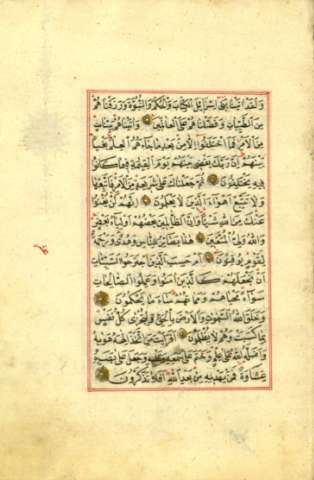 وَلَقَدْ اٰتَيْنَا بَنِي اِسْرَائِلَ الْكِتَابَ وَالْحُكْمَ وَالنُّبُوَّةَ وَرَزَقْنَاهُمْ
مِنَ الطَّيِّبَاتِ وَفَضَّلْنَاهُمْ عَلَى الْعَالَمِينَ وَاٰتَيْنَاهُمْ بَيِّنَاتٍ
مِنَ الْاَمْرِ فَمَا اخْتَلَفُوا اِلَّا مِنْ بَعْدِ مَا جَاءَهُمُ الْعِلْمُ بَغْيًا
بَيْنَهُمْ اِنَّ رَبَّكَ يَقْضِي بَيْنَهُمْ يَوْمَ الْقِيٰمَةِ فِيمَا كَانُوا
فِيهِ يَخْتَلِفُونَ ثُمَّ جَعَلْنَاكَ عَلٰى شَرِيعَةٍ مِنَ الْاَمْرِ فَاتَّبِعْهَا
وَلَا تَتَّبِعْ اَهْوَاءَ الَّذِينَ لَا يَعْلَمُونَ اِنَّهُمْ لَنْ يُغْنُوا
عَنْكَ مِنَ اللّٰهِ شَيْئًا وَاِنَّ الظَّالِمِينَ بَعْضُهُمْ اَوْلِيَاءُ بَعْضٍ
وَاللّٰهُ وَلِيُّ الْمُتَّقِينَ هٰذَا بَصَائِرُ لِلنَّاسِ وَهُدًى وَرَحْمَةٌ
لِقَوْمٍ يُوقِنُونَ اَمْ حَسِبَ الَّذِينَ اجْتَرَحُوا السَّيِّئَاتِ
اَنْ نَجْعَلَهُمْ كَالَّذِينَ اٰمَنُوا وَعَمِلُوا الصَّالِحَاتِ
سَوَاءً مَحْيَاهُمْ وَمَمَاتُهُمْ سَاءَ مَا يَحْكُمُونَ
وَخَلَقَ اللّٰهُ السَّمٰوَاتِ وَالْاَرْضَ بِالْحَقِّ وَلِتُجْزٰى كُلُّ نَفْسٍ
بِمَا كَسَبَتْ وَهُمْ لَا يُظْلَمُونَ اَفَرَاَيْتَ مَنِ اتَّخَذَ اِلٰهَهُ هَوٰيهُ
وَاَضَلَّهُ اللّٰهُ عَلٰى عِلْمٍ وَخَتَمَ عَلٰى سَمْعِهِ وَقَلْبِهِ وَجَعَلَ عَلٰى بَصَرِهِ
غِشَاوَةً فَمَنْ يَهْدِيهِ مِنْ بَعْدِ اللّٰهِ اَفَلَا تَذَكَّرُونَ